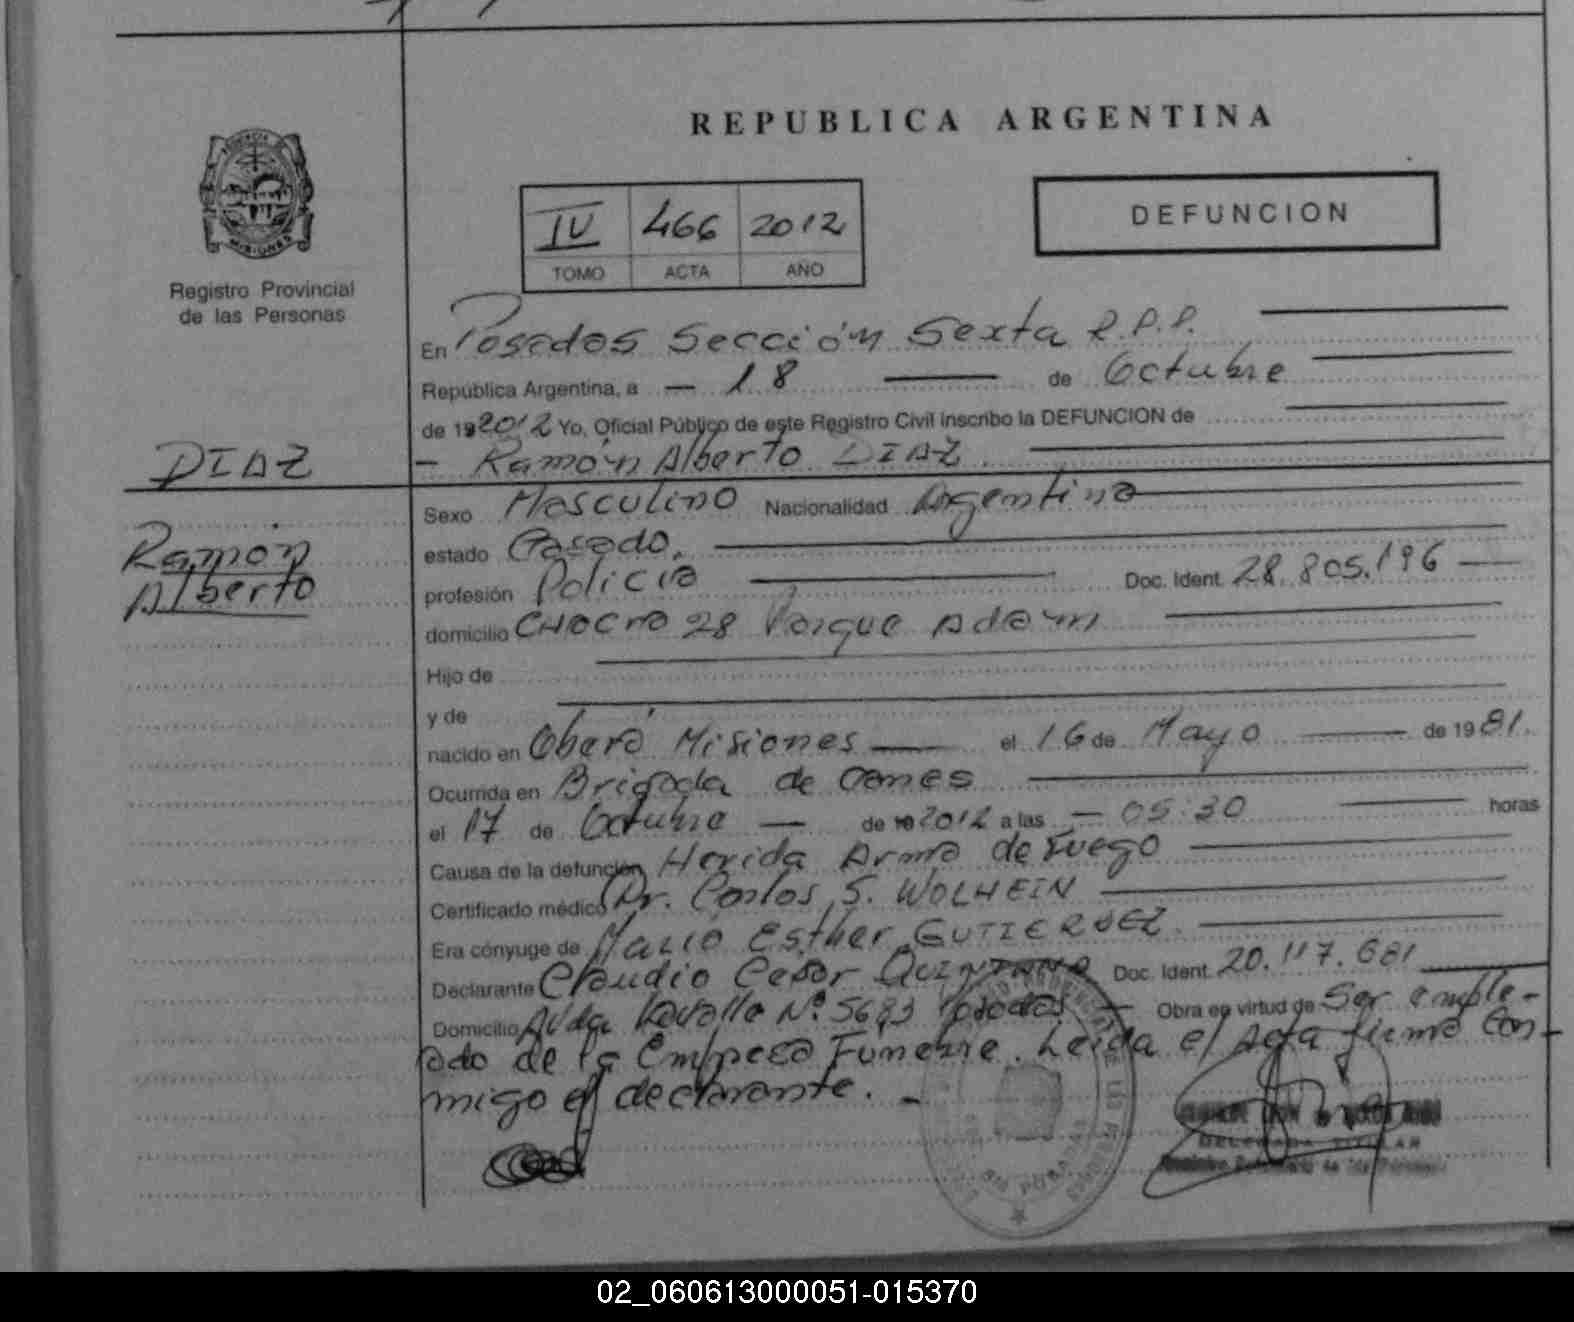 REPUBLICA ARGENTINA
DEFUNCION
IV 466 2012
TOMO ACTA AÑO
MISIONES
Registro Provincial
de las Personas
En Posadas Sección Sexta R.P.P.
República Argentina, a — 18 — de Octubre
de 19 2012 Yo, Oficial Público de este Registro Civil inscribo la DEFUNCION de
DIAZ
— Ramón Alberto DIAZ
Ramón
Alberto
Sexo Masculino Nacionalidad Argentina
estado Casado.
profesión Policia Doc. Ident. 28.805.196 —
domicilio CHACRA 28 Parque Adam
Hijo de
y de
nacido en Oberá Misiones — el 16 de Mayo — de 1981.
Ocurrida en Brigada de canes
el 17 de Octubre — de 19 2012 a las — 05:30 — horas
Causa de la defunción Herida Arma de Fuego
Certificado médico Dr. Carlos S. WOLHEIN
Era cónyuge de María Esther GUTIERREZ.
Declarante Claudio Cesar QUINTANA Doc. Ident. 20.117.681
Domicilio Avda Lavalle Nº 5683 Posadas — Obra en virtud de Ser emple-
ado de la Empresa Funebre. Leida el Acta firma con-
migo el declarante. —
POSADAS
02_060613000051-015370